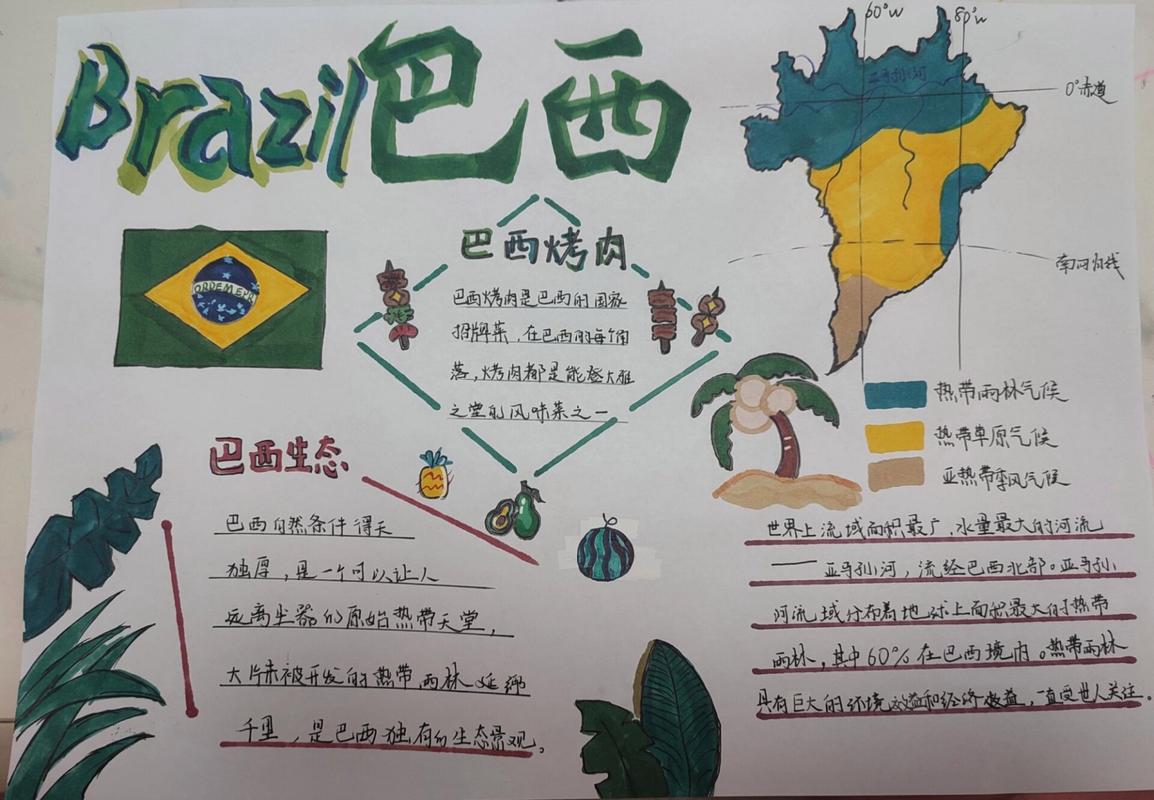 Brazil巴西
60°W
80°W
亚马孙河
0°赤道
南回归线
热带雨林气候
热带草原气候
亚热带季风气候
ORDEM E
巴西烤肉
巴西烤肉是巴西的国家
招牌菜，在巴西的每个角
落，烤肉都是能登大雅
之堂的风味菜之一
巴西生态
巴西自然条件得天
独厚，是一个可以让人
远离尘嚣的原始热带天堂，
大片未被开发的热带雨林延绵
千里，是巴西独有的生态景观。
世界上流域面积最广，水量最大的河流
——亚马孙河，流经巴西北部。亚马孙
河流域分布着地球上面积最大的热带
雨林，其中60%在巴西境内。热带雨林
具有巨大的环境效益和经济效益，一直受世人关注。